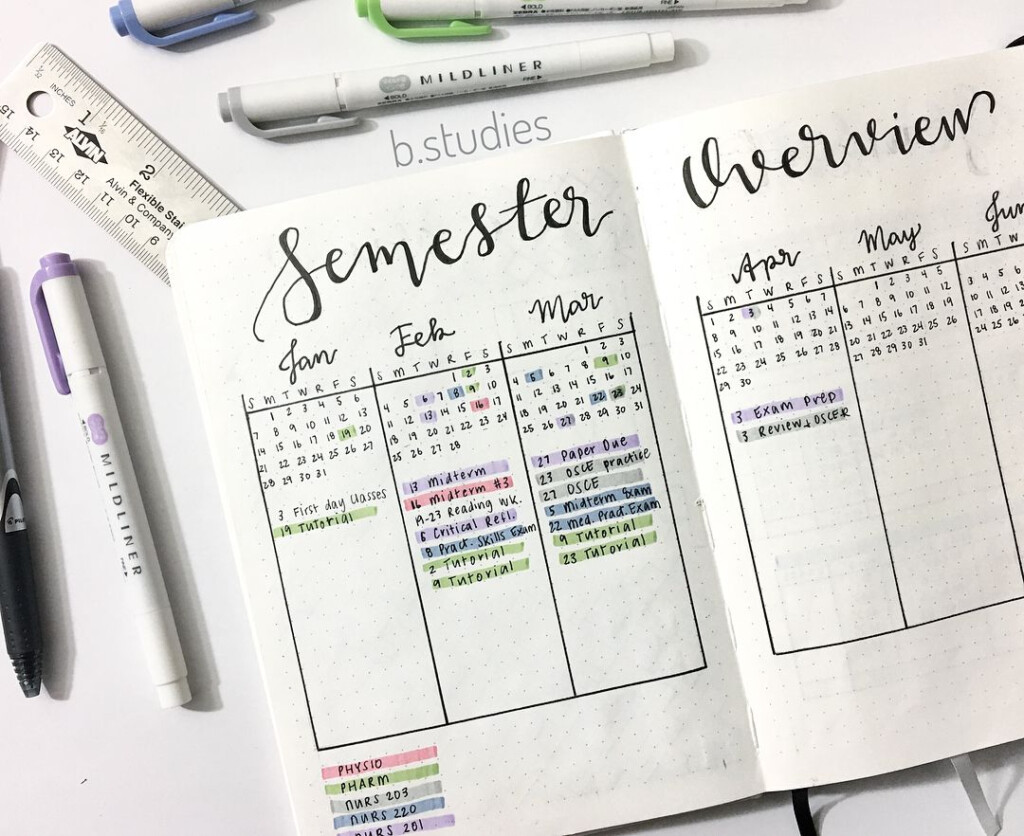 BOLD
ZEBRA
FINE
MILDLINER
BOLD
FINE
b.studies
INCHES
1
2
ALVIN
Flexible Stai
Alvin & Company
15 14 13 12 11 10 9
MILDLINER
FINE
Semester
Overview
Jan
S M T W R F S
1 2 3 4 5 6
7 8 9 10 11 12 13
14 15 16 17 18 19 20
21 22 23 24 25 26 27
28 29 30 31
3 First day classes
19 Tutorial
Feb
S M T W R F S
1 2 3
4 5 6 7 8 9 10
11 12 13 14 15 16 17
18 19 20 21 22 23 24
25 26 27 28
13 Midterm
16 Midterm #3
19-23 Reading wk.
6 Critical Refl.
8 Pract. Skills Exam
2 Tutorial
9 Tutorial
Mar
S M T W R F S
1 2 3
4 5 6 7 8 9 10
11 12 13 14 15 16 17
18 19 20 21 22 23 24
25 26 27 28 29 30 31
27 Paper Due
23 OSCE practice
27 OSCE
5 Midterm Exam
22 Med. Pract. Exam
9 Tutorial
23 Tutorial
Apr
S M T W R F S
1 2 3 4 5 6 7
8 9 10 11 12 13 14
15 16 17 18 19 20 21
22 23 24 25 26 27 28
29 30
3 Exam Prep
3 Review + OSCER
May
S M T W R F S
1 2 3 4 5
6 7 8 9 10 11 12
13 14 15 16 17 18 19
20 21 22 23 24 25 26
27 28 29 30 31
Jun
S M T W
3 4 5 6
10 11 12 13
17 18 19 20
24 25 26
PHYSIO
PHARM
NURS 203
NURS 220
NURS 201